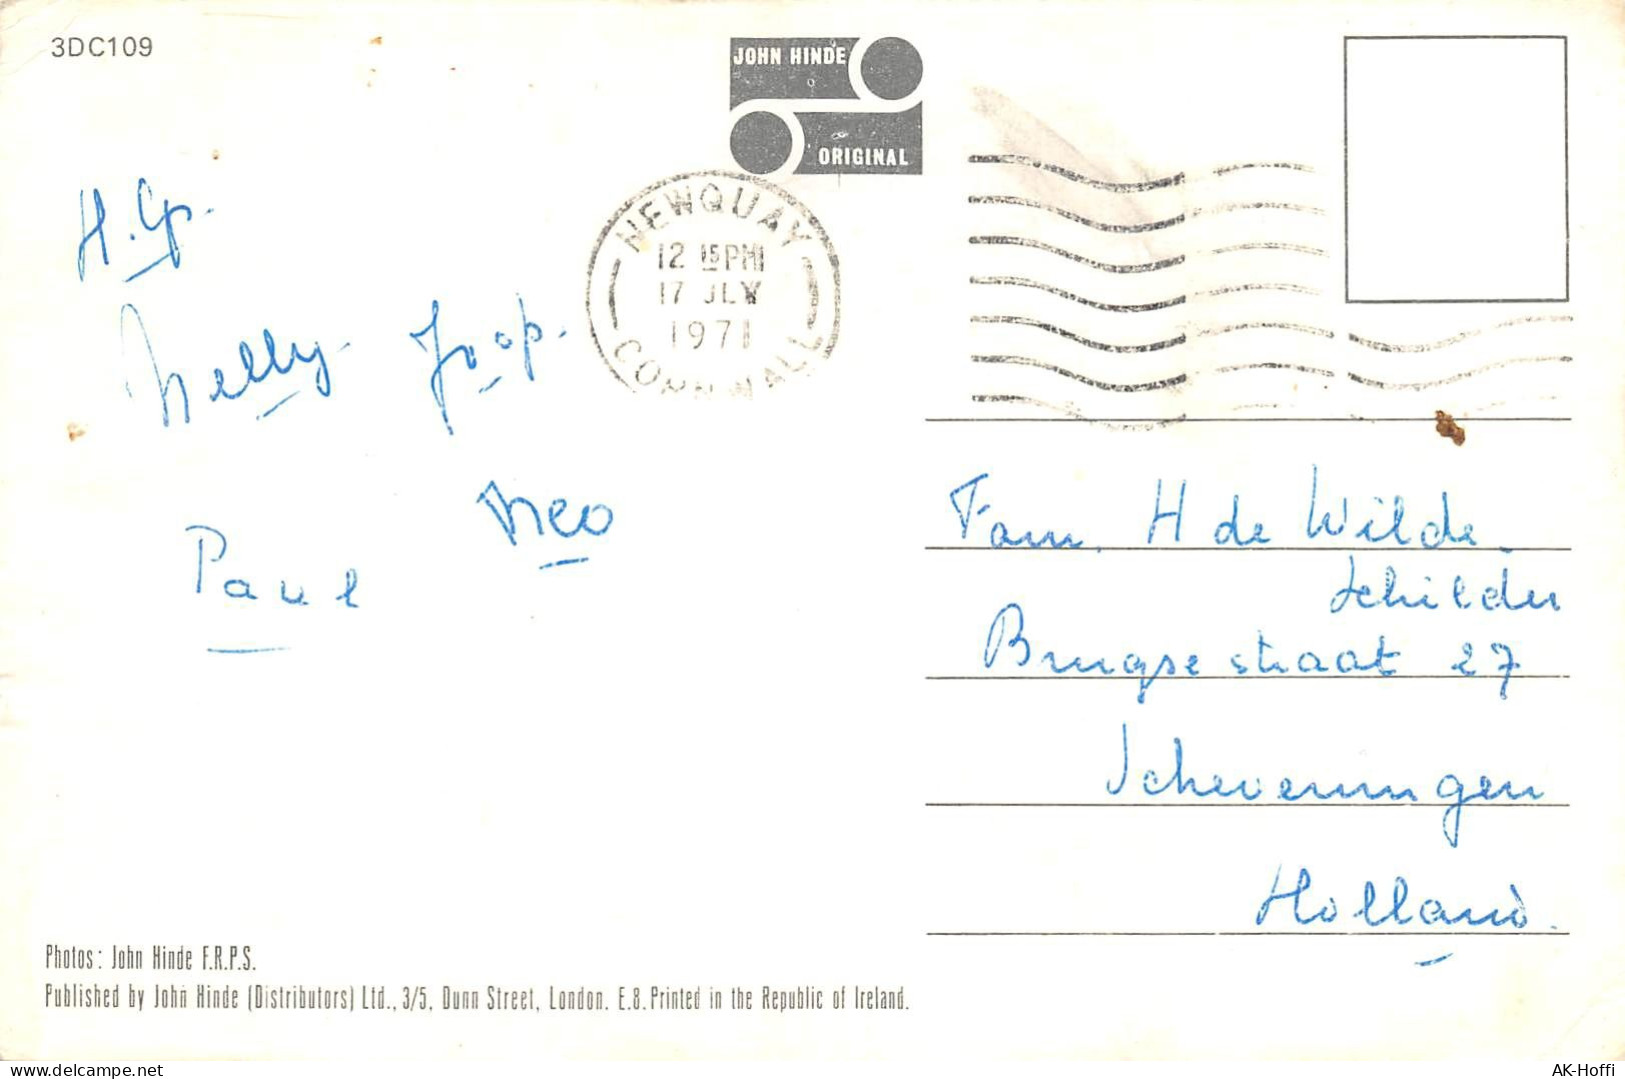 3DC109
JOHN HINDE
ORIGINAL
NEWQUAY
12 15 PM
17 JLY
1971
CORNWALL
H. Gp.
Nelly. Joop.
Paul Neo
Fam. H de Wilde
Schilder
Brugsestraat 27
Scheveningen
Holland.
Photos: John Hinde F.R.P.S.
Published by John Hinde (Distributors) Ltd., 3/5, Dunn Street, London. E.8. Printed in the Republic of Ireland.
AK-Hoffi
delcampe.net